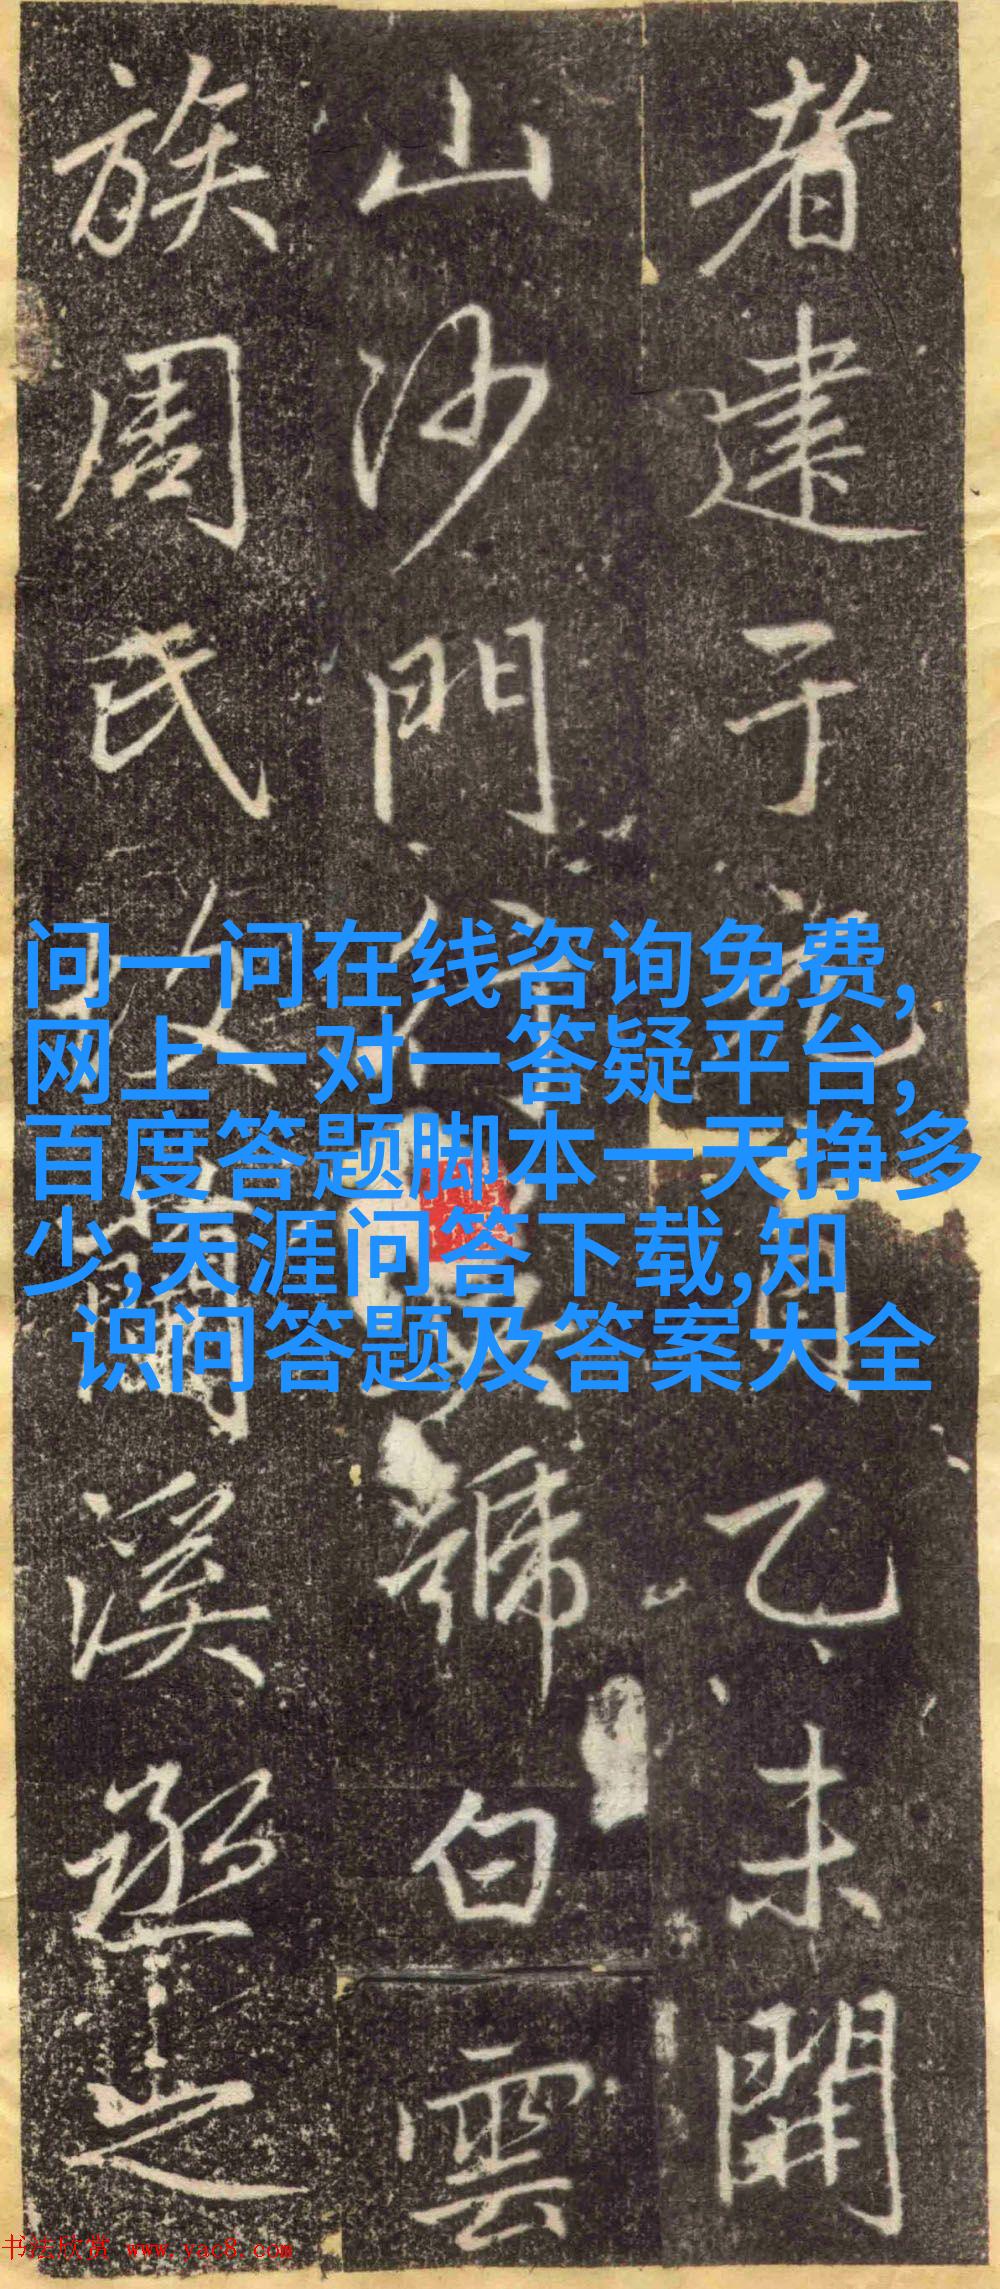 者建于元□□月乙未開
山沙門從□號白雲
族周氏父□蘭溪丞之
问一问在线咨询免费,
网上一对一答疑平台,
百度答题脚本一天挣多
少,天涯问答下载,知
识问答题及答案大全
书法欣赏 www.yac8.com